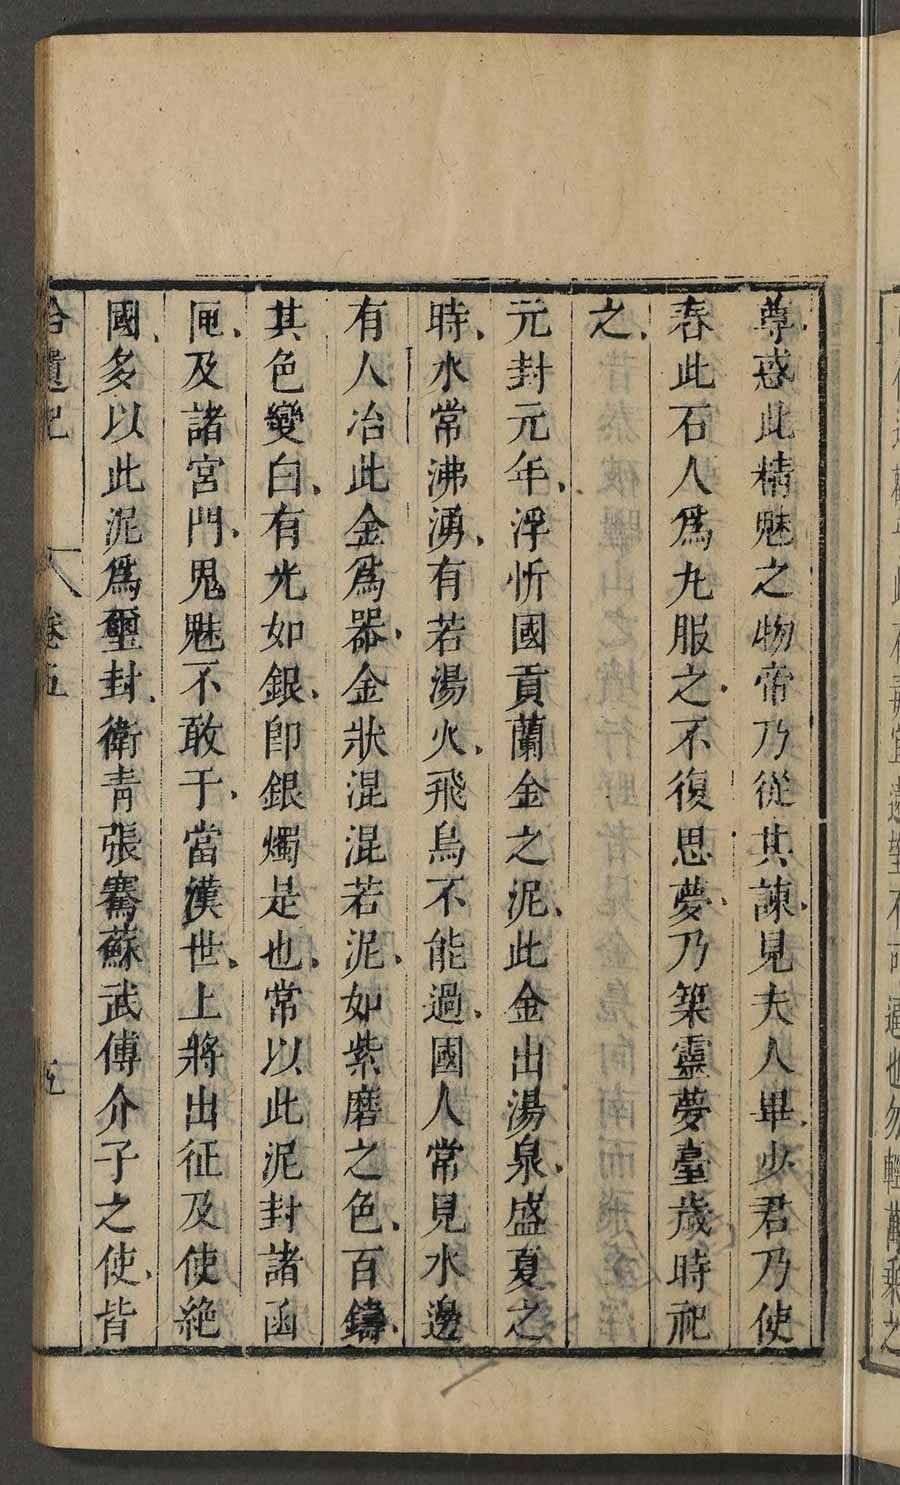 尊惑此精魅之物帝乃從其諫見夫人畢少君乃使
舂此石人爲九服之不復思夢乃築靈夢臺歲時祀
之
元封元年浮忻國貢蘭金之泥此金出湯泉盛夏之
時水常沸湧有若湯火飛鳥不能過國人常見水邊
有人冶此金爲器金狀混混若泥如紫磨之色百鑄
其色變白有光如銀卽銀燭是也常以此泥封諸函
匣及諸宮門鬼魅不敢干當漢世上將出征及使絶
國多以此泥爲璽封衛青張騫蘇武傅介子之使皆
拾遺記 卷五 五